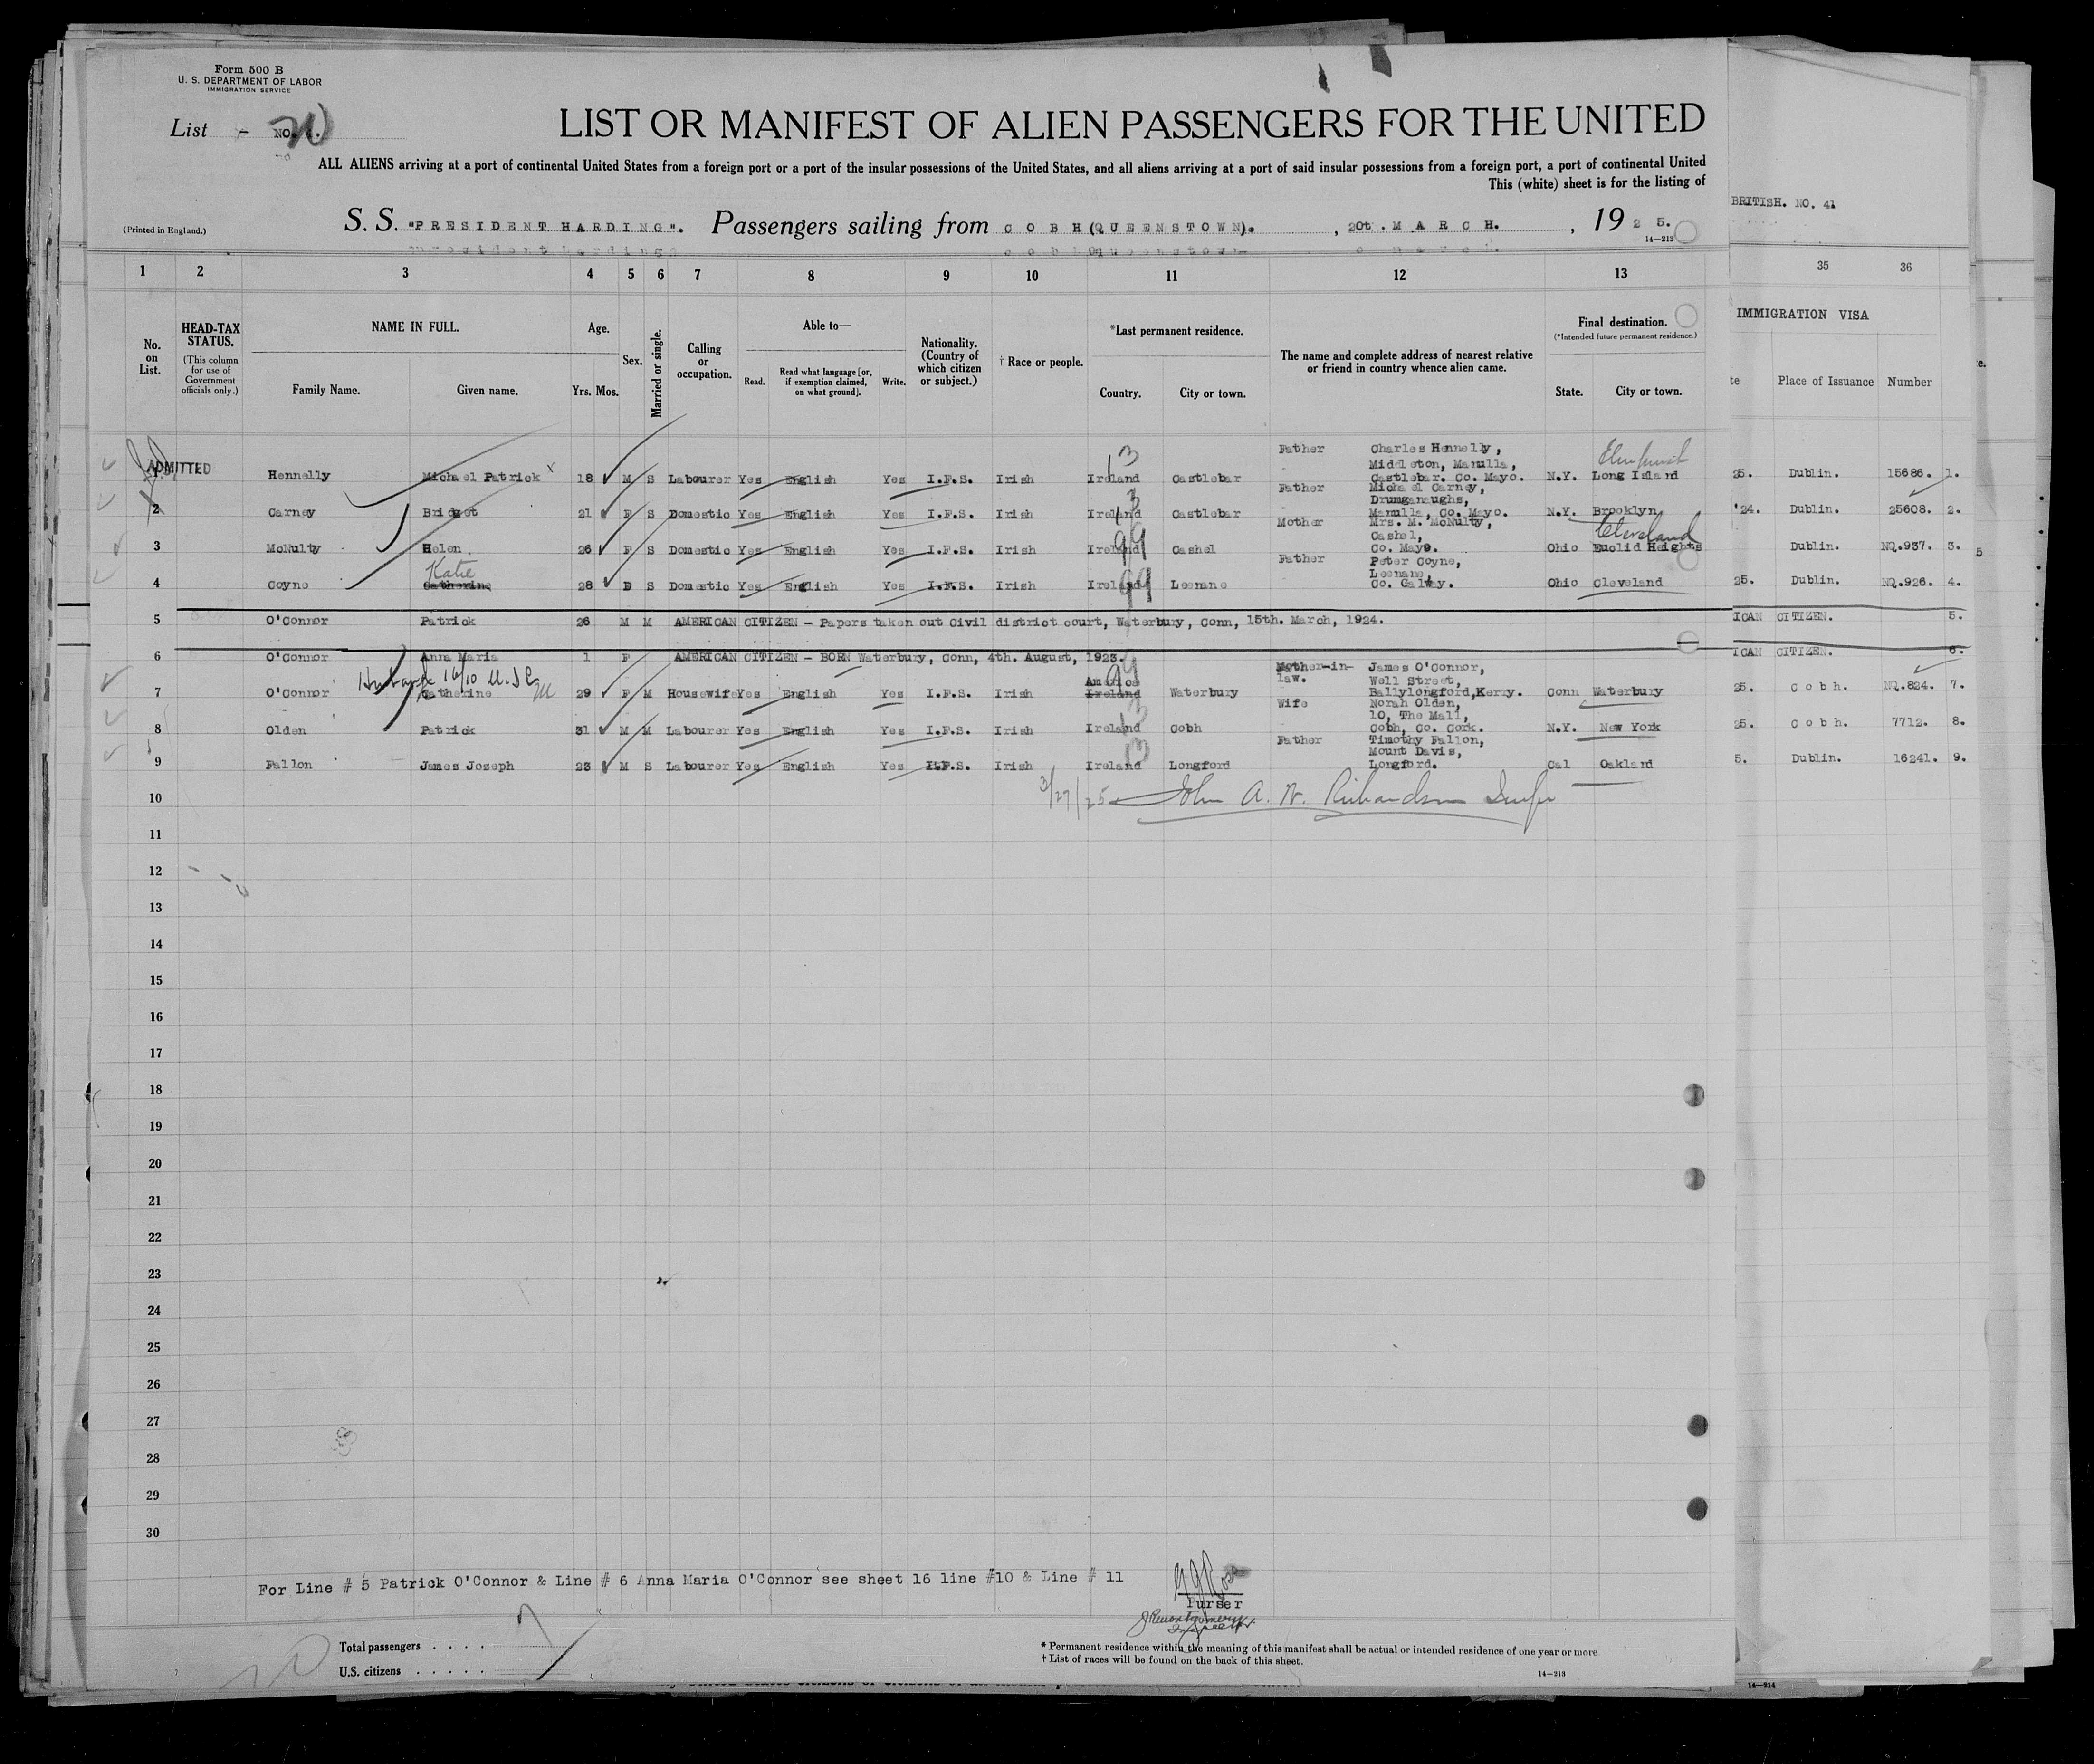 Form 500 B
U. S. DEPARTMENT OF LABOR
IMMIGRATION SERVICE
List - NO.
LIST OR MANIFEST OF ALIEN PASSENGERS FOR THE UNITED
ALL ALIENS arriving at a port of continental United States from a foreign port or a port of the insular possessions of the United States, and all aliens arriving at a port of said insular possessions from a foreign port, a port of continental United
This (white) sheet is for the listing of
BRITISH. NO. 41
(Printed in England.) S. S. "PRESIDENT HARDING". Passengers sailing from COBH(QUEENSTOWN). , 20t.MARCH. , 1925.
14—213
1 2 3 4 5 6 7 8 9 10 11 12 13 35 36
No. on List.
HEAD-TAX STATUS.
(This column for use of Government officials only.)
NAME IN FULL.
Family Name. Given name.
Age.
Yrs. Mos.
Sex.
Married or single.
Calling or occupation.
Able to—
Read. Read what language [or, if exemption claimed, on what ground]. Write.
Nationality. (Country of which citizen or subject.)
† Race or people.
*Last permanent residence.
Country. City or town.
The name and complete address of nearest relative or friend in country whence alien came.
Final destination.
(*Intended future permanent residence.)
State. City or town.
IMMIGRATION VISA
te Place of Issuance Number
ADMITTED Hennelly Michael Patrick 18 M S Labourer Yes English Yes I.F.S. Irish Ireland Castlebar Father Charles Hennelly, Middleton, Manulla, Castlebar. Co. Mayo. N.Y. Elmhurst Long Island 25. Dublin. 15686. 1.
2 Carney Bridget 21 F S Domestic Yes English Yes I.F.S. Irish Ireland Castlebar Father Michael Carney, Drumganaughs, Manulla, Co. Mayo. N.Y. Brooklyn '24. Dublin. 25608. 2.
3 McNulty Helen 26 F S Domestic Yes English Yes I.F.S. Irish Ireland Cashel Mother Mrs. M. McNulty, Cashel, Co. Mayo. Ohio Cleveland Euclid Heights Dublin. NQ.937. 3.
4 Coyne Katie Catherine 28 F S Domestic Yes English Yes I.F.S. Irish Ireland Leenane Father Peter Coyne, Leenane, Co. Galway. Ohio Cleveland 25. Dublin. NQ.926. 4.
5 O'Connor Patrick 26 M M AMERICAN CITIZEN - Papers taken out Civil district court, Waterbury, Conn, 15th. March, 1924. ICAN CITIZEN. 5.
6 O'Connor Anna Maria 1 F AMERICAN CITIZEN - BORN Waterbury, Conn, 4th. August, 1923. ICAN CITIZEN. 6.
Husband 16/10 U.S.C.
7 O'Connor Catherine 29 F M Housewife Yes English Yes I.F.S. Irish America Ireland Waterbury Mother-in-law. James O'Connor, Well Street, Ballylongford,Kerry. Conn Waterbury 25. Cobh. NQ.824. 7.
8 Olden Patrick 31 M M Labourer Yes English Yes I.F.S. Irish Ireland Cobh Wife Norah Olden, 10, The Mall, Cobh, Co. Cork. N.Y. New York 25. Cobh. 7712. 8.
9 Fallon James Joseph 23 M S Labourer Yes English Yes I.F.S. Irish Ireland Longford Father Timothy Fallon, Mount Davis, Longford. Cal Oakland 5. Dublin. 16241. 9.
10 3/27/25 John A. W. Richardson Inspr
11
12
13
14
15
16
17
18
19
20
21
22
23
24
25
26
27
28
29
30
For Line # 5 Patrick O'Connor & Line # 6 Anna Maria O'Connor see sheet 16 line #10 & Line # 11
Purser
JRMontgomery
Inspector
Total passengers . . . . 7
U.S. citizens . . . . .
* Permanent residence within the meaning of this manifest shall be actual or intended residence of one year or more
† List of races will be found on the back of this sheet.
14—213
14—214